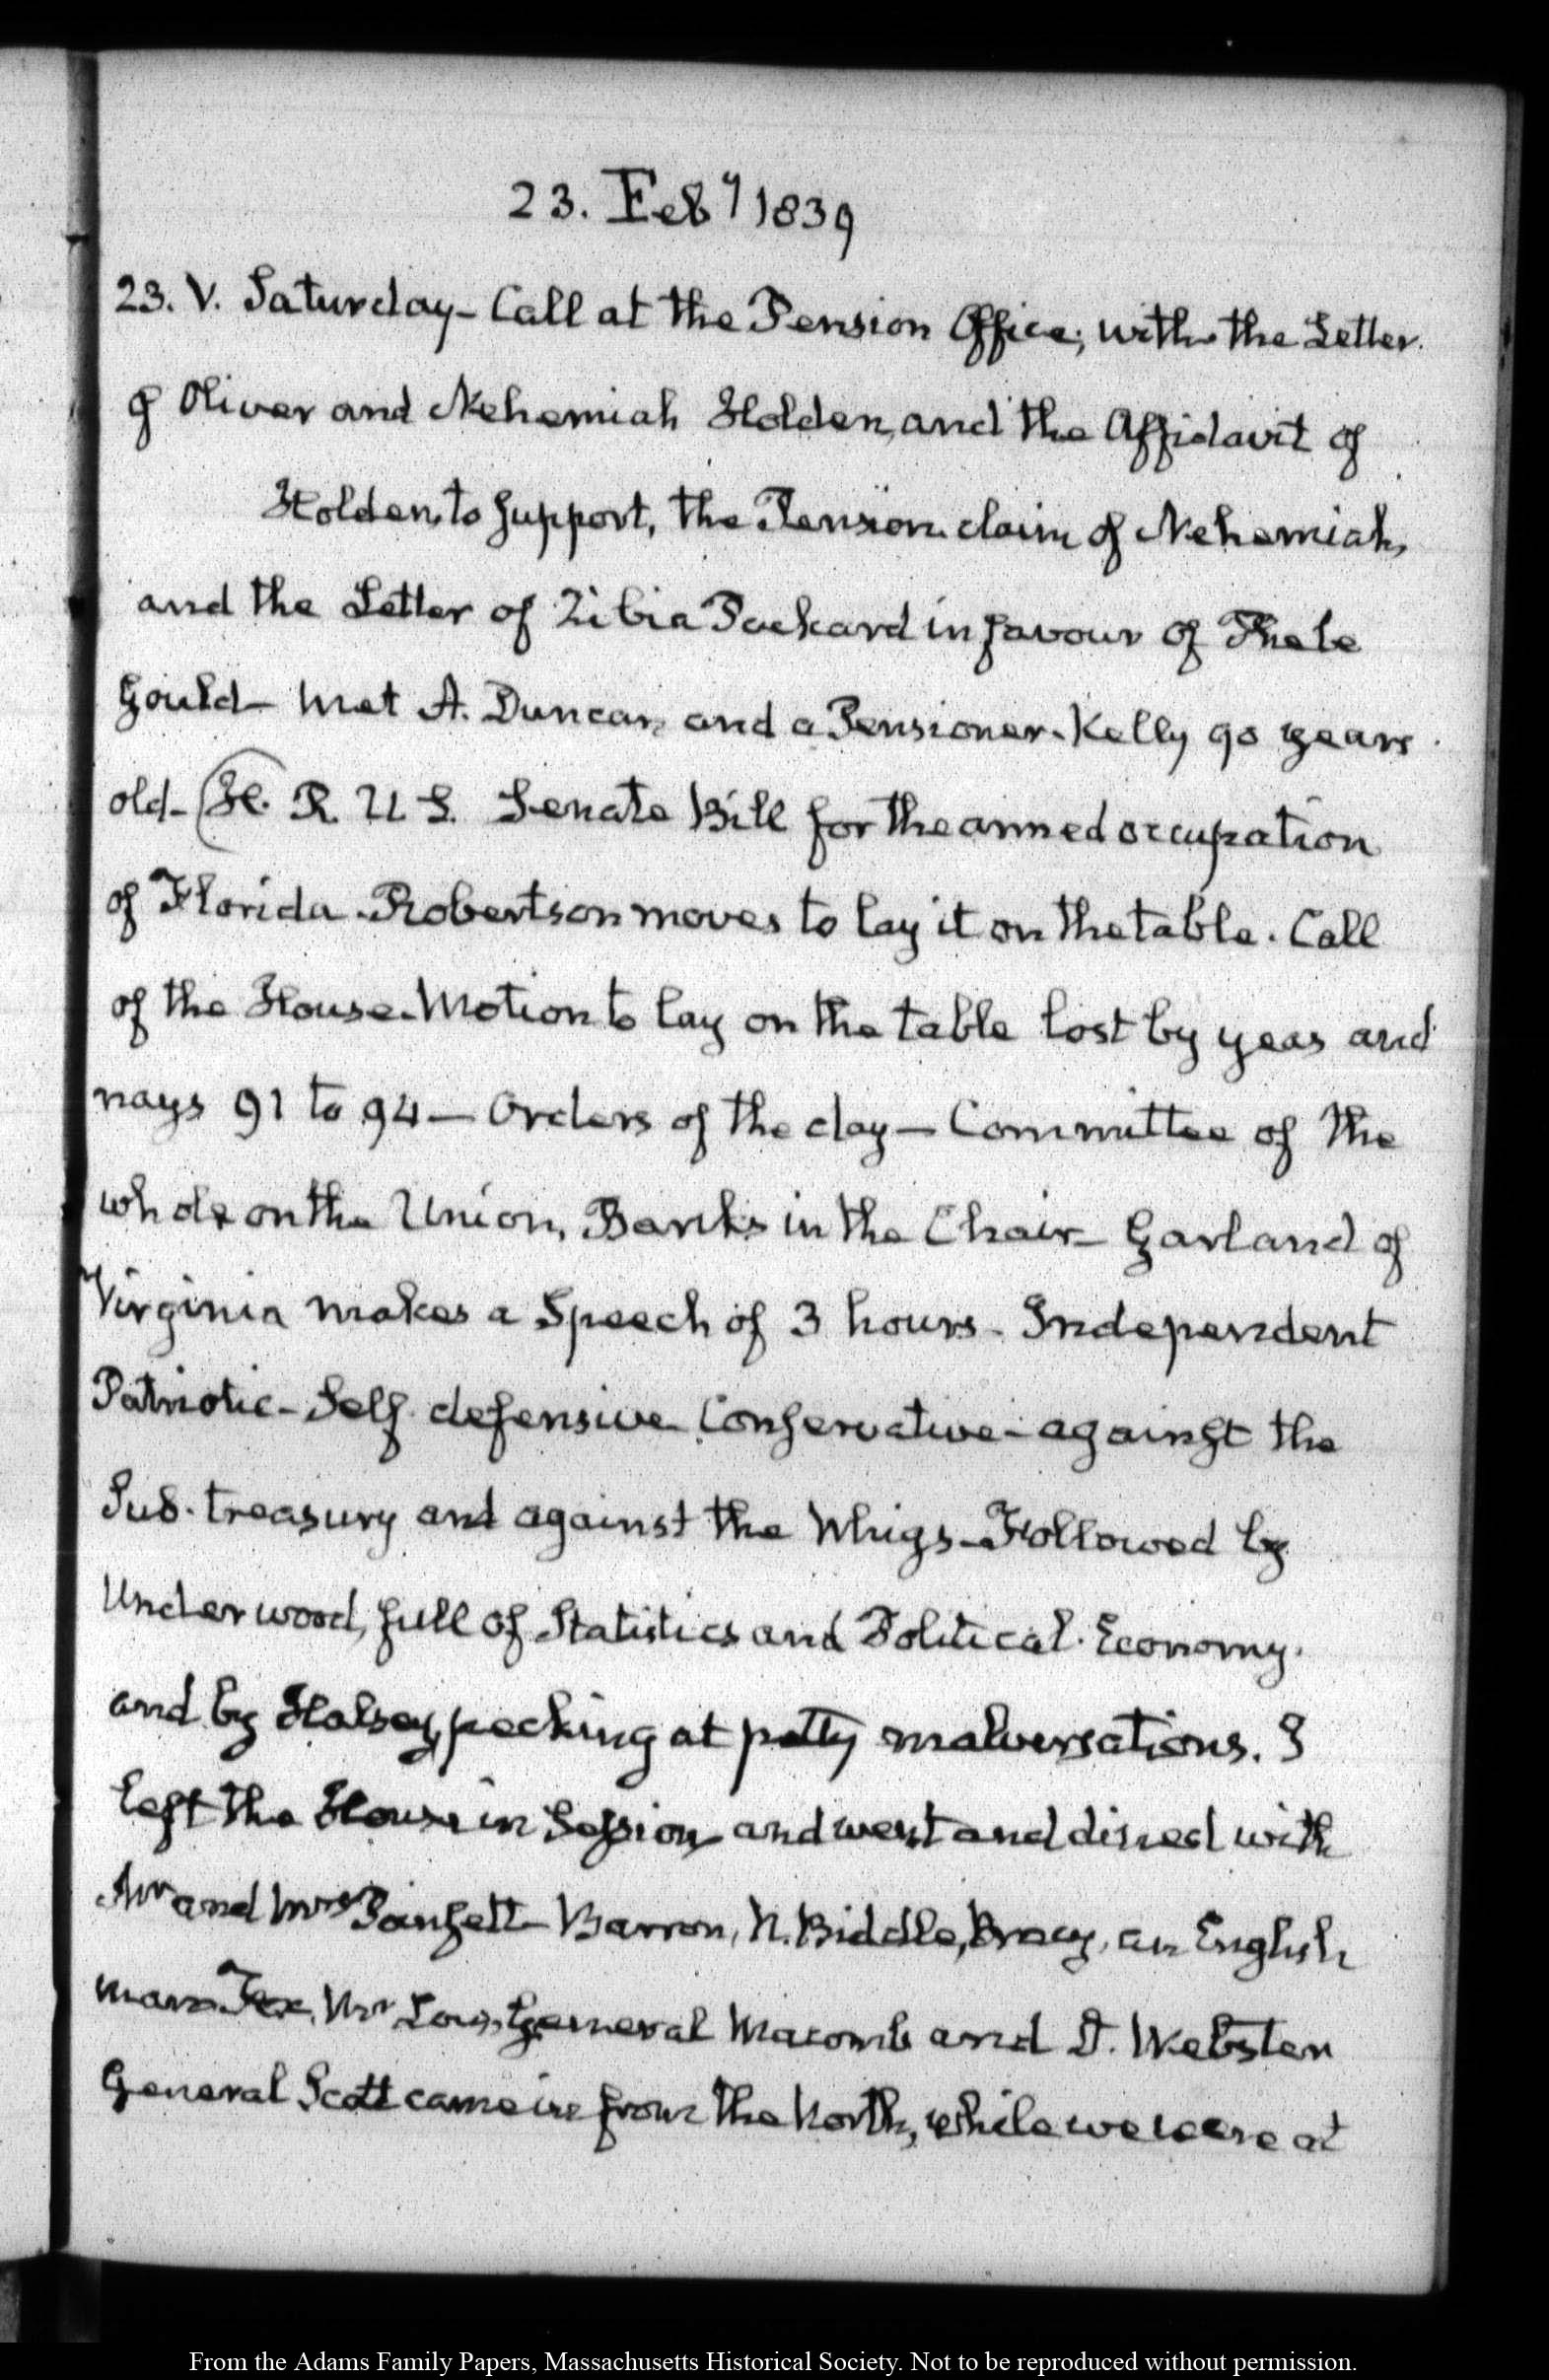 23. Feb.y 1839
23. V. Saturday – Call at the Pension Office; with the Letter
of Oliver and Nehemiah Holden, and the Affidavit of
Holden, to support, the Pension claim of Nehemiah,
and the Letter of Zibia Packard in favour of Phebe
Gould – Met A. Duncan and a Pensioner – Kelly 90 years
old – H. R. U S. Senate Bill for the armed occupation
of Florida – Robertson moves to lay it on the table. Call
of the House – Motion to lay on the table lost by yeas and
nays 91 to 94 – Orders of the day – Committee of the
whole on the Union, Banks in the Chair – Garland of
Virginia makes a Speech of 3 hours – Independent
Patriotic – Self defensive Conservative – against the
Sub-treasury and against the Whigs – Followed by
Underwood, full of Statistics and Political Economy.
and by Halsey, pecking at petty malversations. I
left the House in Session and went and dined with
Mr and Mrs Poinsett – Barron, N. Biddle, an English
man Mr General Macomb and D. Webster
General Scott came in from the North, while we were at
From the Adams Family Papers, Massachusetts Historical Society. Not to be reproduced without permission.